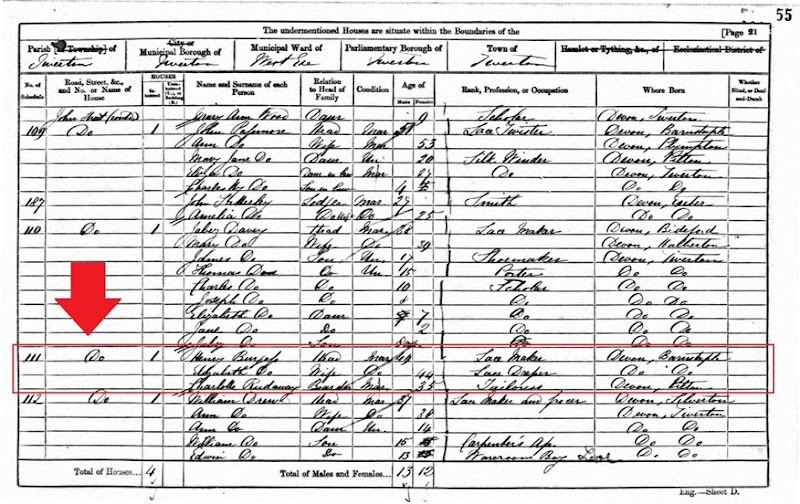 55
The undermentioned Houses are situate within the Boundaries of the
[Page 21
Parish [or Township] of
City or
Municipal Borough of
Municipal Ward of
Parliamentary Borough of
Town of
Hamlet or Tything, &c., of
Ecclesiastical District of
Tiverton
Tiverton
West Exe
Tiverton
Tiverton
No. of Schedule
Road, Street, &c., and No. or Name of House
HOUSES
Name and Surname of each Person
Relation to Head of Family
Condition
Age of
Males
Females
Rank, Profession, or Occupation
Where Born
Whether Blind, or Deaf-and-Dumb
John Street Mary Ann Wood Daur 9 Scholar Devon, Tiverton
109 Do 1 John Head Mar Lace Twister Devon, Barnstaple
Ann Do Wife Mar 53 Devon, Plympton
Mary Jane Do Daur Un 20 Silk Winder Devon,
Do Daur in law Mar 27 Do Devon, Tiverton
Charles Do Do Do
187 John Lodger Mar 27 Smith Devon, Exeter
Amelia Do Do 25 Do Do
110 Do 1 Jabez Davey Head Mar 38 Lace Maker Devon, Bideford
Mary Do Wife Do 39 Devon,
James Do Son Un 17 Shoemaker Devon, Tiverton
Thomas Do Do Un 15 Porter Do Do
Charles Do Do 10 Scholar Do Do
Joseph Do Do 8 Do Do Do
Elizabeth Do Daur 7 Do Do Do
Jane Do Do 2 Do Do
Jabez Do Son Do Do
111 Do 1 Henry Burgess Head Mar Lace Maker Devon, Barnstaple
Elizabeth Do Wife Do 44 Lace Do Do
Charlotte Ridaway Boarder Mar 35 Tailoress Devon,
112 Do 1 William Drew Head Mar 37 Lace Maker and Devon, Silverton
Ann Do Wife Do 38 Devon, Tiverton
Ann Do Daur Un 14 Do Do
William Do Son 15 Carpenter's Ap. Do Do
Edwin Do Do 13 Wareroom Boy Lace Do Do
Total of Houses... 4
Total of Males and Females... 13 12
Eng.—Sheet D.